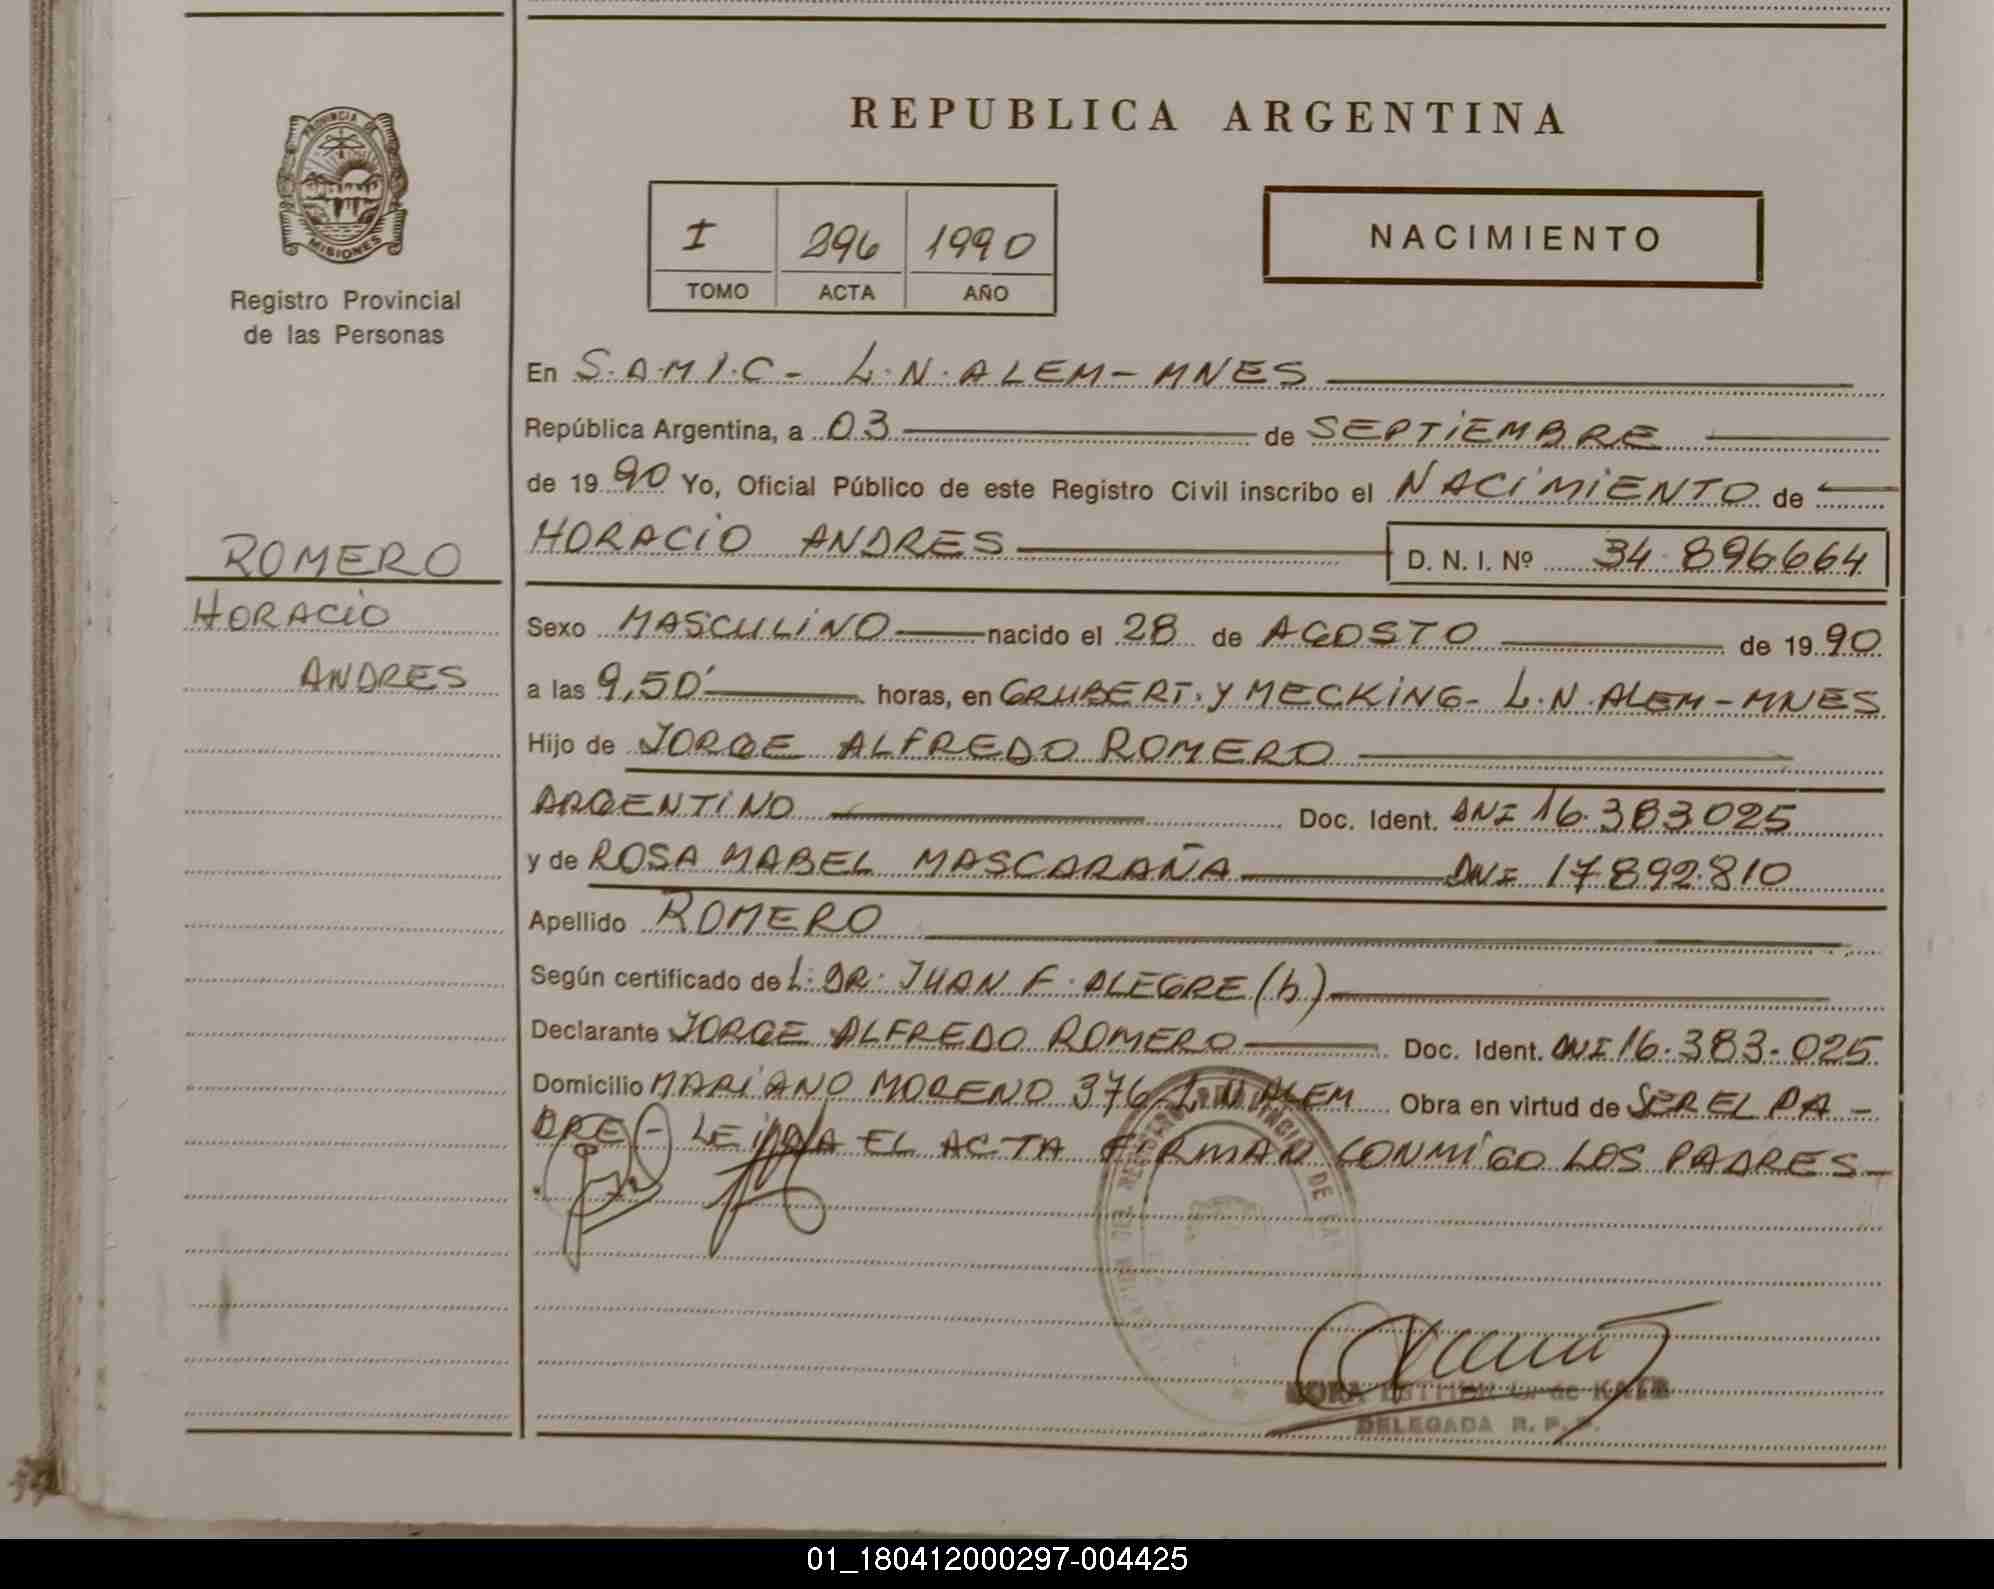 REPUBLICA ARGENTINA
PROVINCIA DE
MISIONES
Registro Provincial
de las Personas
I 296 1990
TOMO ACTA AÑO
NACIMIENTO
En S.A.M.I.C- L.N.ALEM-MNES
República Argentina, a 03 de SEPTIEMBRE
de 1990 Yo, Oficial Público de este Registro Civil inscribo el NACIMIENTO de
HORACIO ANDRES D. N. I. Nº 34.896664
ROMERO
HORACIO
ANDRES
Sexo MASCULINO nacido el 28 de AGOSTO de 1990
a las 9,50' horas, en GRUBERT.Y MECKING- L.N.ALEM-MNES
Hijo de JORGE ALFREDO ROMERO
ARGENTINO Doc. Ident. DNI 16.383025
y de ROSA MABEL MASCARAÑA DNI 17892.810
Apellido ROMERO
Según certificado de L. DR. JUAN F. ALEGRE (h)
Declarante JORGE ALFREDO ROMERO Doc. Ident. DNI 16.383.025
Domicilio MARIANO MORENO 376 L.N.ALEM Obra en virtud de SER EL PA-
DRE- LEIDA EL ACTA FIRMAN CONMIGO LOS PADRES-
DELEGADA R. P. P.
01_180412000297-004425